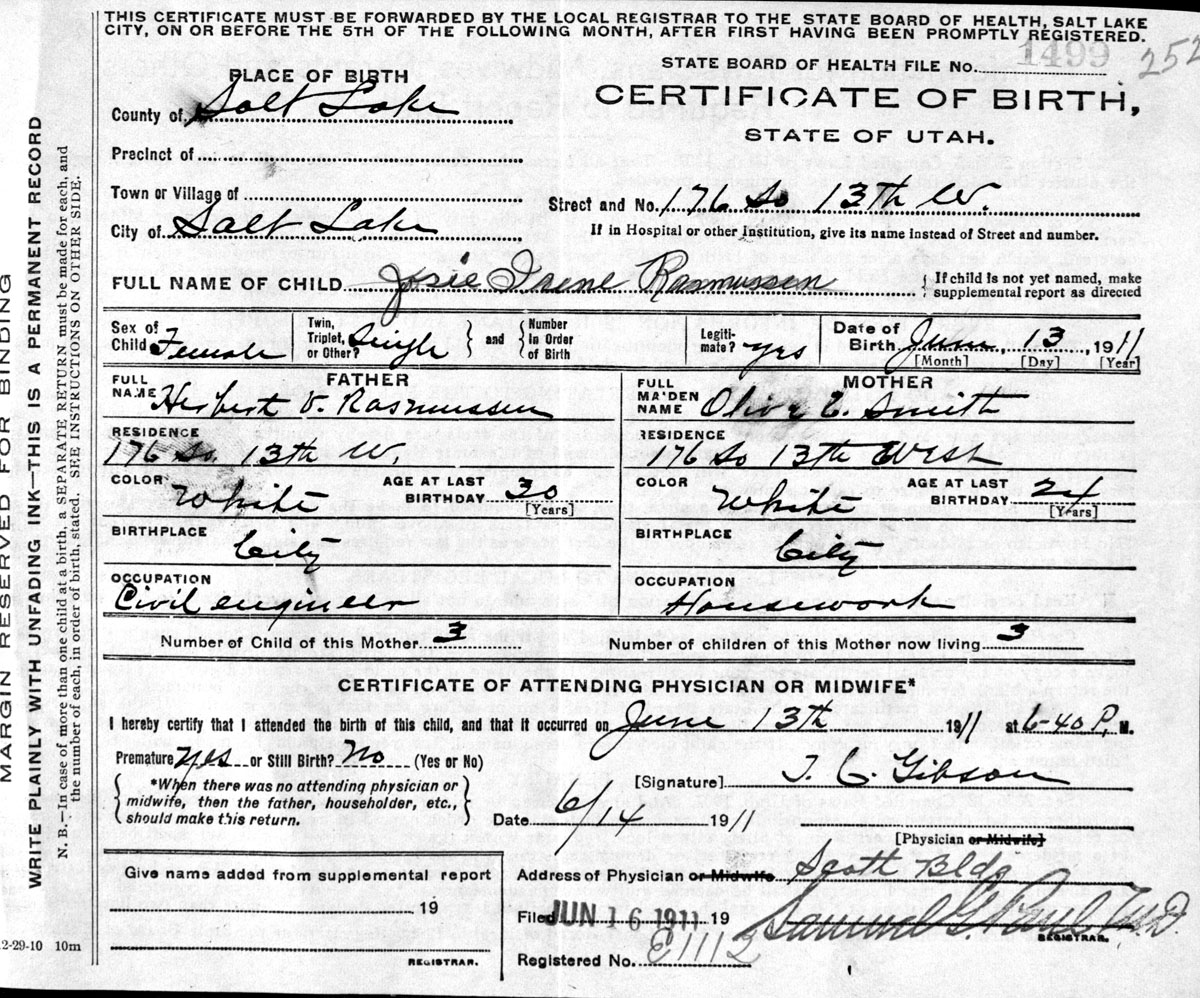 THIS CERTIFICATE MUST BE FORWARDED BY THE LOCAL REGISTRAR TO THE STATE BOARD OF HEALTH, SALT LAKE
CITY, ON OR BEFORE THE 5TH OF THE FOLLOWING MONTH, AFTER FIRST HAVING BEEN PROMPTLY REGISTERED.
STATE BOARD OF HEALTH FILE No. 1499
252
CERTIFICATE OF BIRTH,
STATE OF UTAH.
PLACE OF BIRTH
County of Salt Lake
Precinct of
Town or Village of
City of Salt Lake
Street and No. 176 So 13th W.
If in Hospital or other Institution, give its name instead of Street and number.
FULL NAME OF CHILD Josie Irene Rasmussen
{ If child is not yet named, make
supplemental report as directed
Sex of Child Female
Twin, Triplet, or Other? Single } and { Number in Order of Birth
Legiti-mate? yes
Date of Birth June, 13 1911
[Month] [Day] [Year]
FATHER
FULL NAME Herbert V. Rasmussen
RESIDENCE
176 So 13th W
COLOR White AGE AT LAST BIRTHDAY 30
[Years]
BIRTHPLACE City
OCCUPATION
Civil engineer
MOTHER
FULL MAIDEN NAME Olive E. Smith
RESIDENCE
176 So 13th West
COLOR White AGE AT LAST BIRTHDAY 24
[Years]
BIRTHPLACE City
OCCUPATION
Housework
Number of Child of this Mother 3
Number of children of this Mother now living 3
CERTIFICATE OF ATTENDING PHYSICIAN OR MIDWIFE*
I hereby certify that I attended the birth of this child, and that it occurred on June 13th 1911 at 6-40 P, M.
Premature yes or Still Birth? No (Yes or No)
{ *When there was no attending physician or
midwife, then the father, householder, etc.,
should make this return. }
[Signature] T. C. Gibson
Date 6/14 1911
[Physician or Midwife]
Address of Physician or Midwife Scott Bldg
Filed JUN 16 1911 19
REGISTRAR.
Registered No. E1112
Give name added from supplemental report
19
REGISTRAR.
MARGIN RESERVED FOR BINDING
WRITE PLAINLY WITH UNFADING INK—THIS IS A PERMANENT RECORD
N. B.—In case of more than one child at a birth, a SEPARATE RETURN must be made for each, and
the number of each, in order of birth, stated. SEE INSTRUCTIONS ON OTHER SIDE.
2-29-10 10m